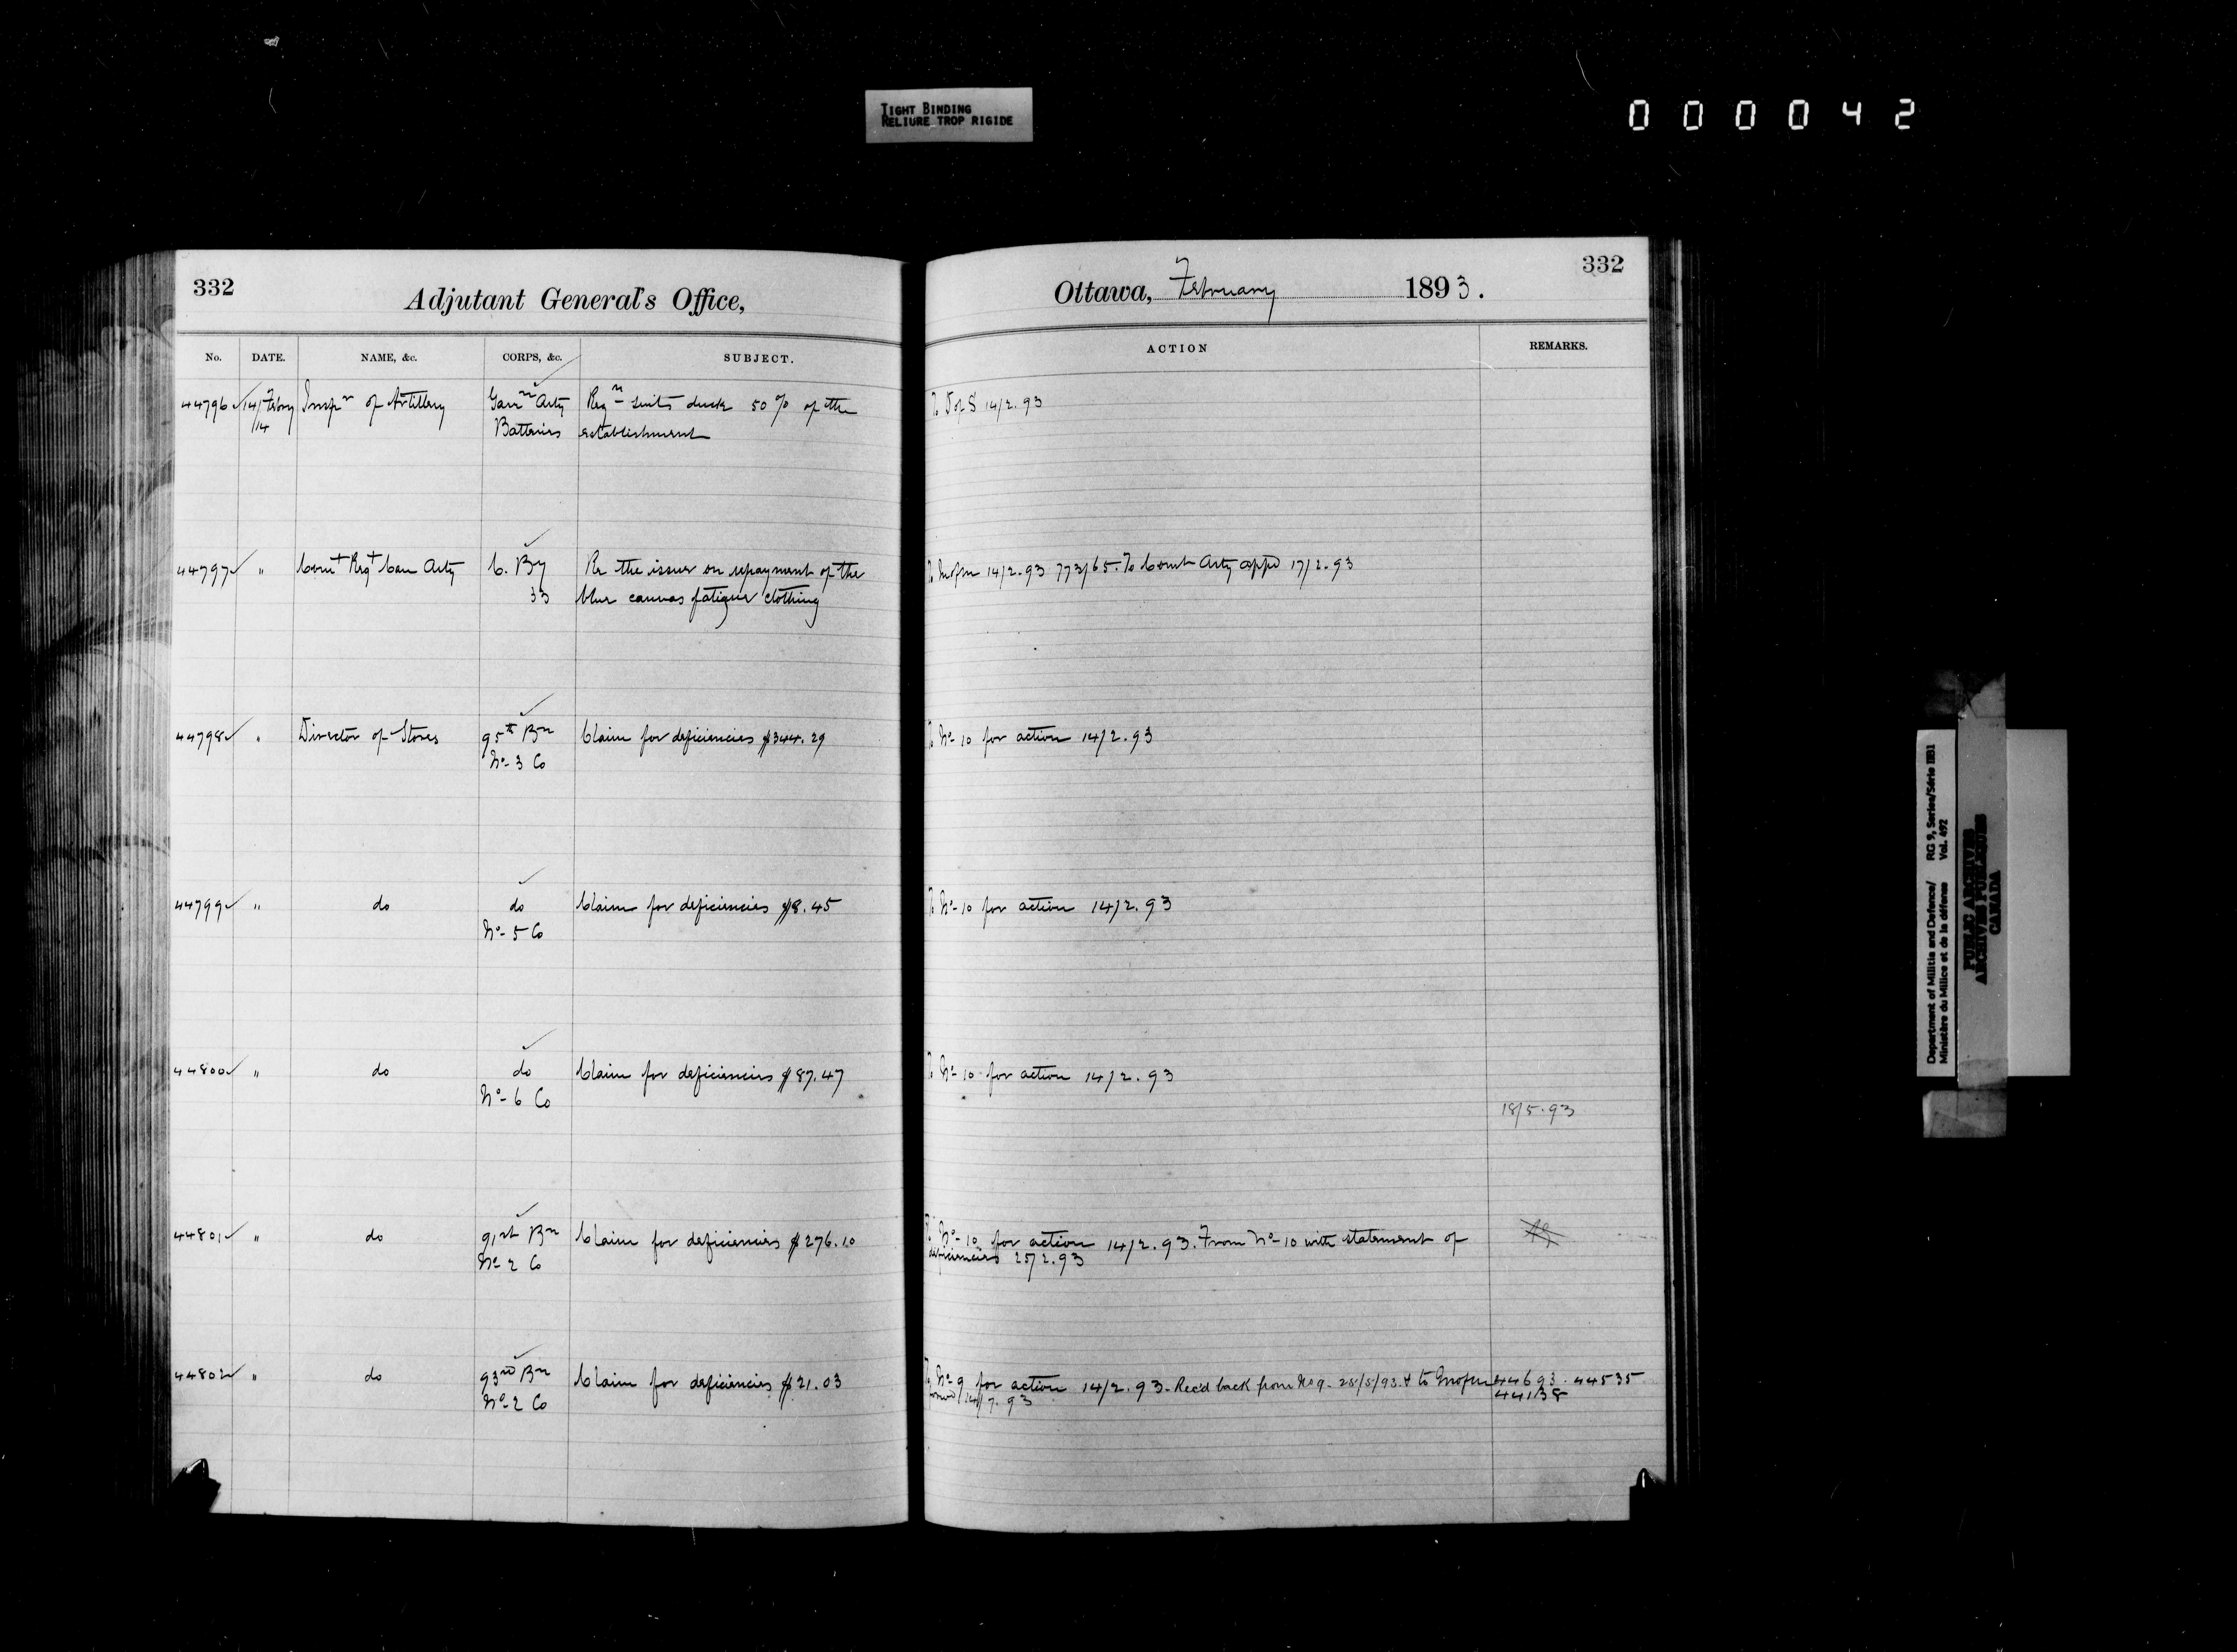 TIGHT BINDING
RELIURE TROP RIGIDE
000042
332
Adjutant General's Office,
No. DATE. NAME, &c. CORPS, &c. SUBJECT.
44796 14/ Febry Insp r of Artillery Garr n Arty Req n suits duck 50% of the
/14 Batteries establishment
44797 " Com t Reg t Can Arty C. By Re the issue on repayment of the
33 blue canvas fatigue clothing
44798 " Director of Stores 95th Bn Claim for deficiencies $344.29
No- 3 Co
44799 " do do Claim for deficiencies $8.45
No- 5 Co
44800 " do do Claim for deficiencies $87.47
No- 6 Co
44801 " do 91st Bn Claim for deficiencies $276.10
No 2 Co
44802 " do 93rd Bn Claim for deficiencies $21.03
No- 2 Co
332
Ottawa, February 1893.
ACTION REMARKS.
To D of S 14/2.93
14/2.93 773/65. To Comt Arty appd 17/2.93
To No- 10 for action 14/2.93
To No- 10 for action 14/2.93
To No- 10 for action 14/2.93
18/5.93
To No- 10 for action 14/2.93. From No- 10 with statement of
deficiencies 25/2.93
To No- 9 for action 14/2.93. Rec'd back from No 9. 25/5/93. & to 44693. 44535
14/7.93 44138
Department of Militia and Defence/ RG 9, Series/Série IIB1
Ministère du Milice et de la défense Vol. 492
PUBLIC ARCHIVES
ARCHIVES PUBLIQUES
CANADA